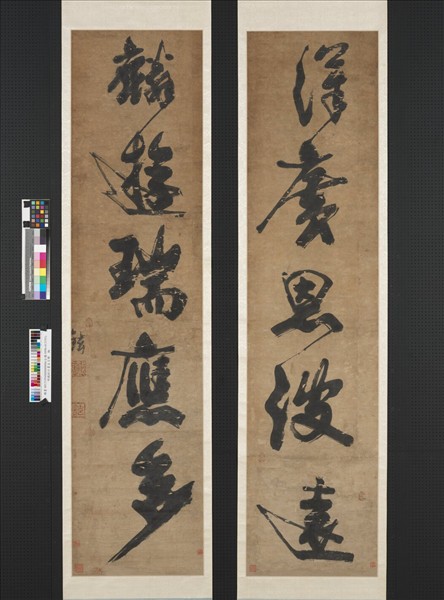 漢廣恩波遠
麟遊瑞應多